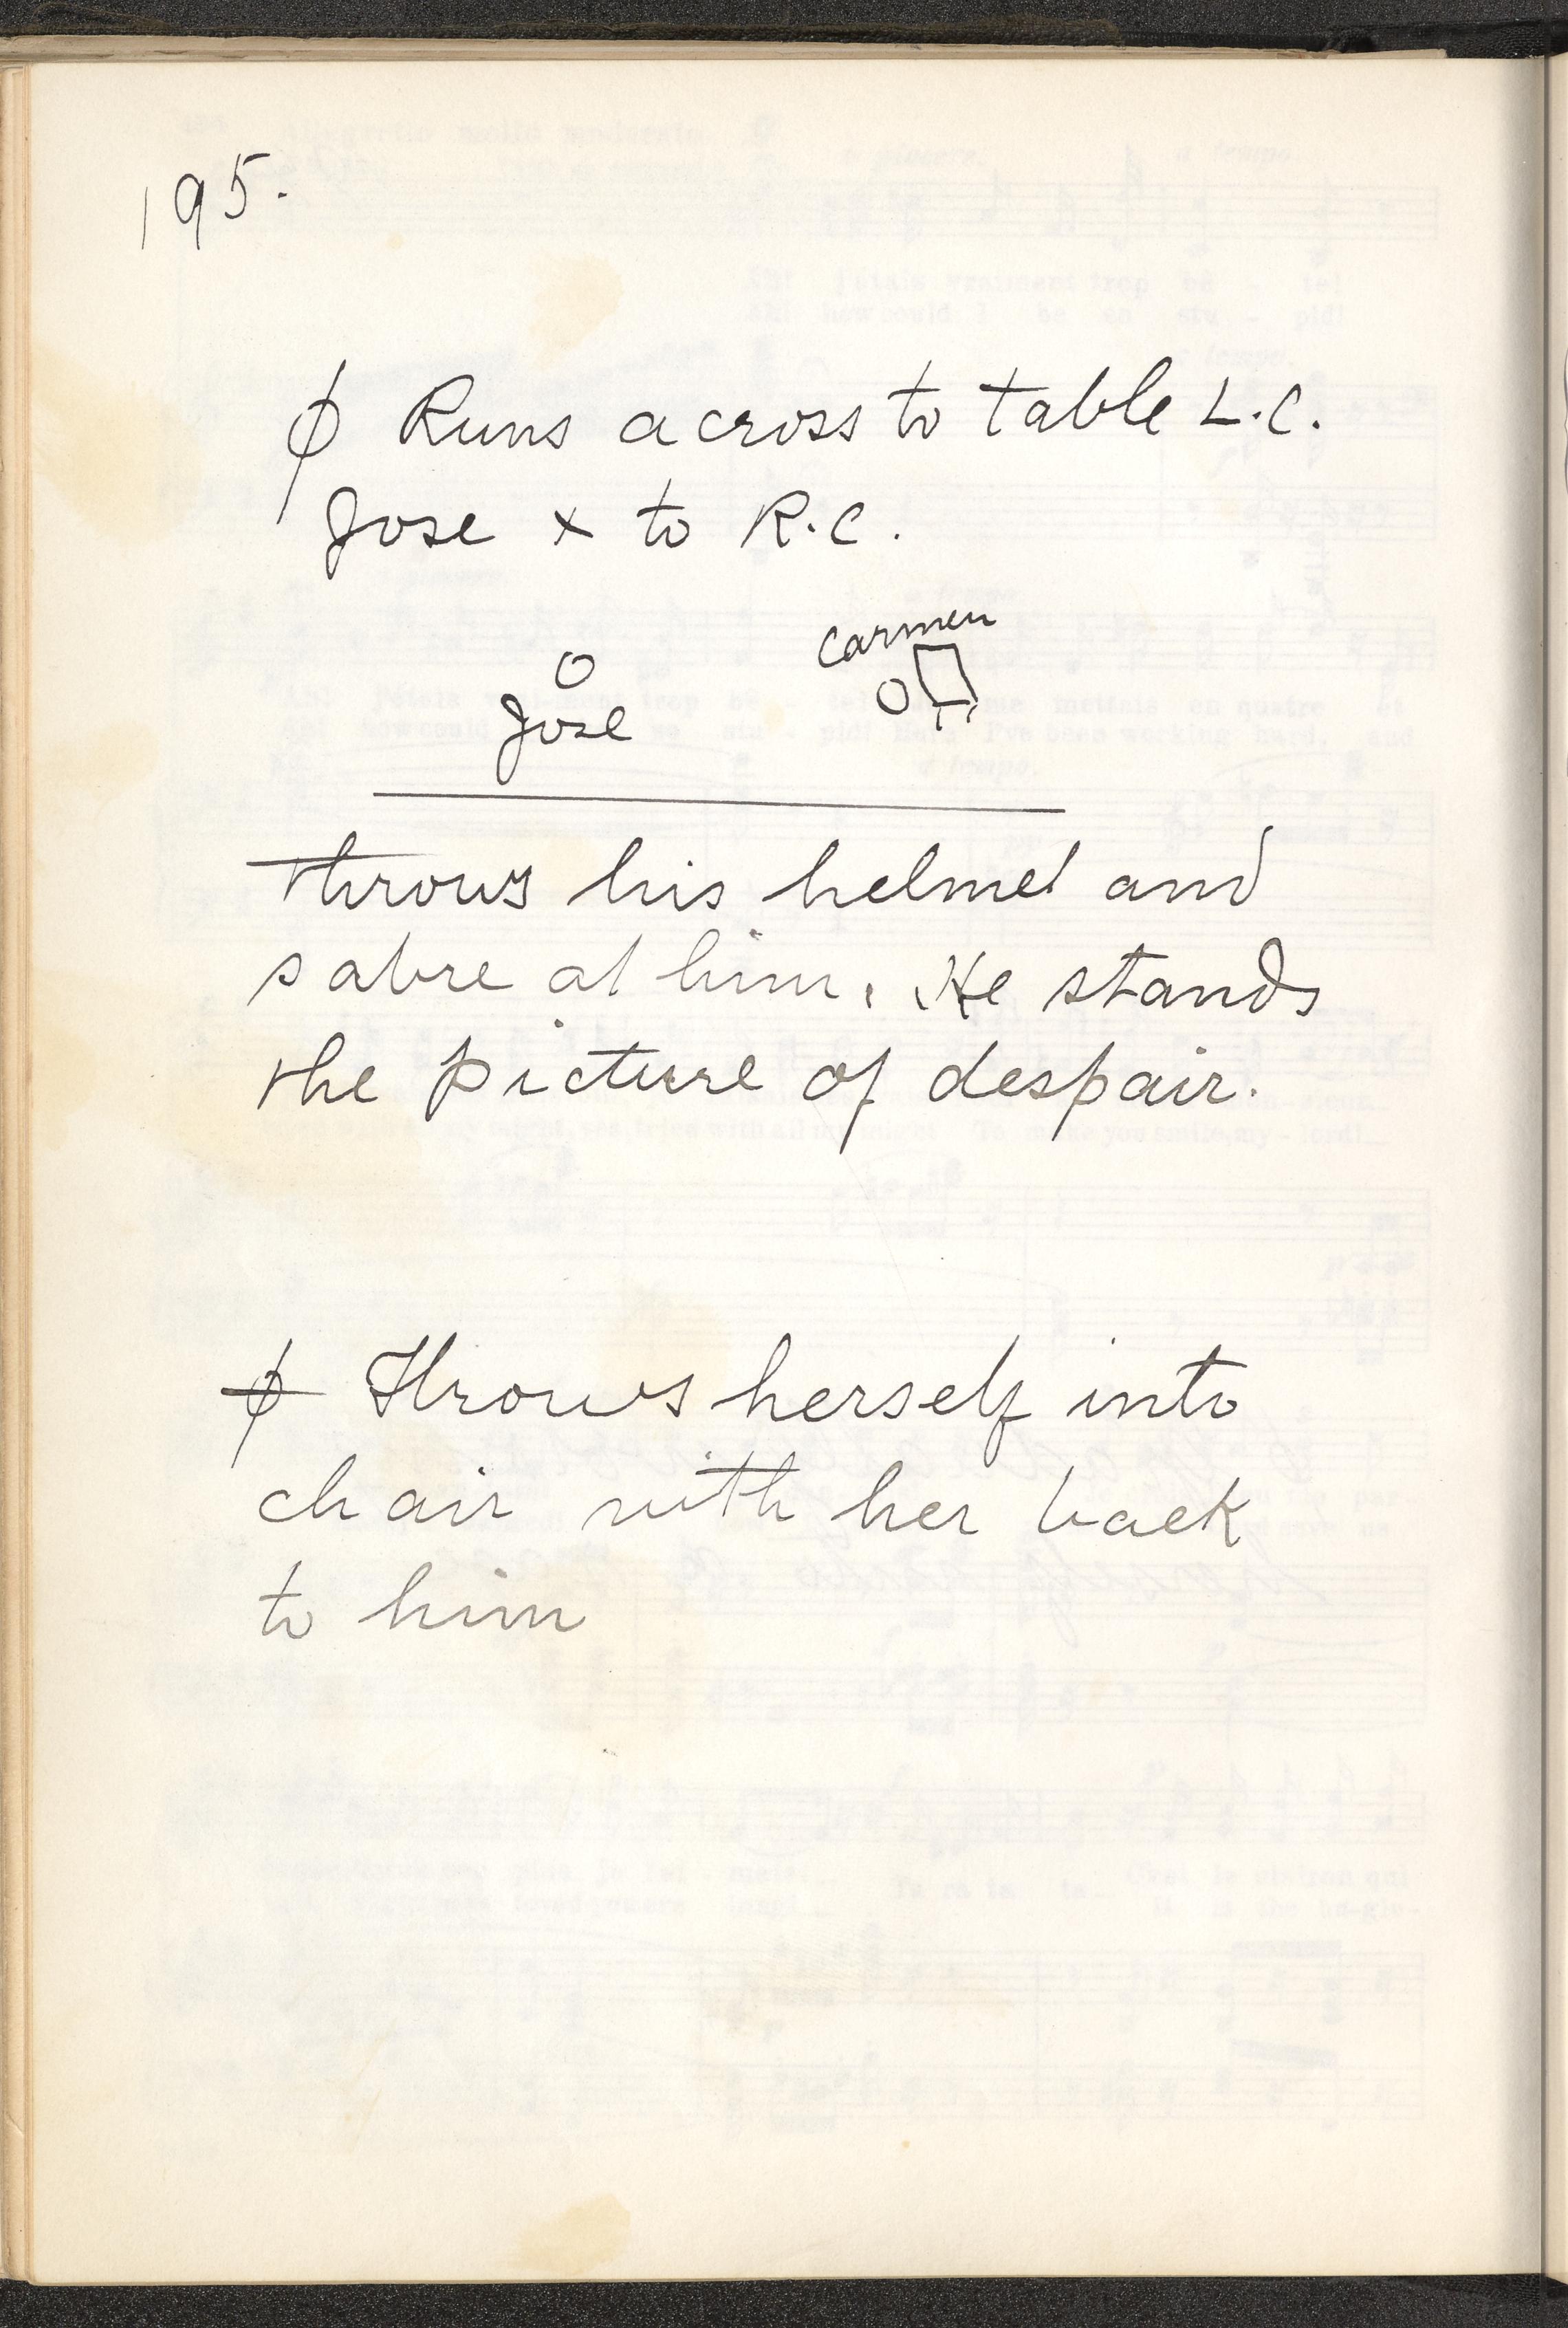 195.
ϕ Runs across to table L.C.
Jose x to R.C.
Carmen
Jose
throws his helmet and
sabre at him. He stands
the picture of despair.
ϕ Throws herself into
chair with her back
to him